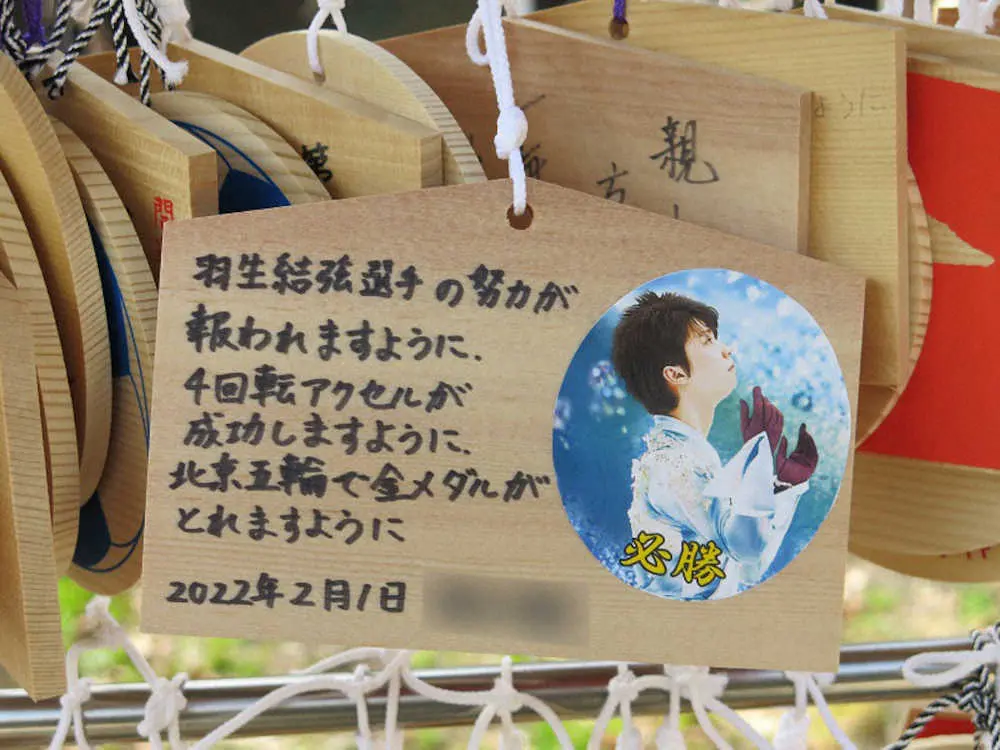 羽生結弦選手の努力が
報われますように.
4回転アクセルが
成功しますように.
北京五輪で金メダルが
とれますように
2022年2月1日
必勝
親
ように